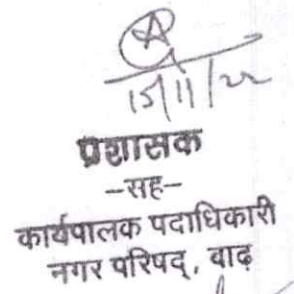 15/11/22
प्रशासक
-सह-
कार्यपालक पदाधिकारी
नगर परिषद्, बाढ़